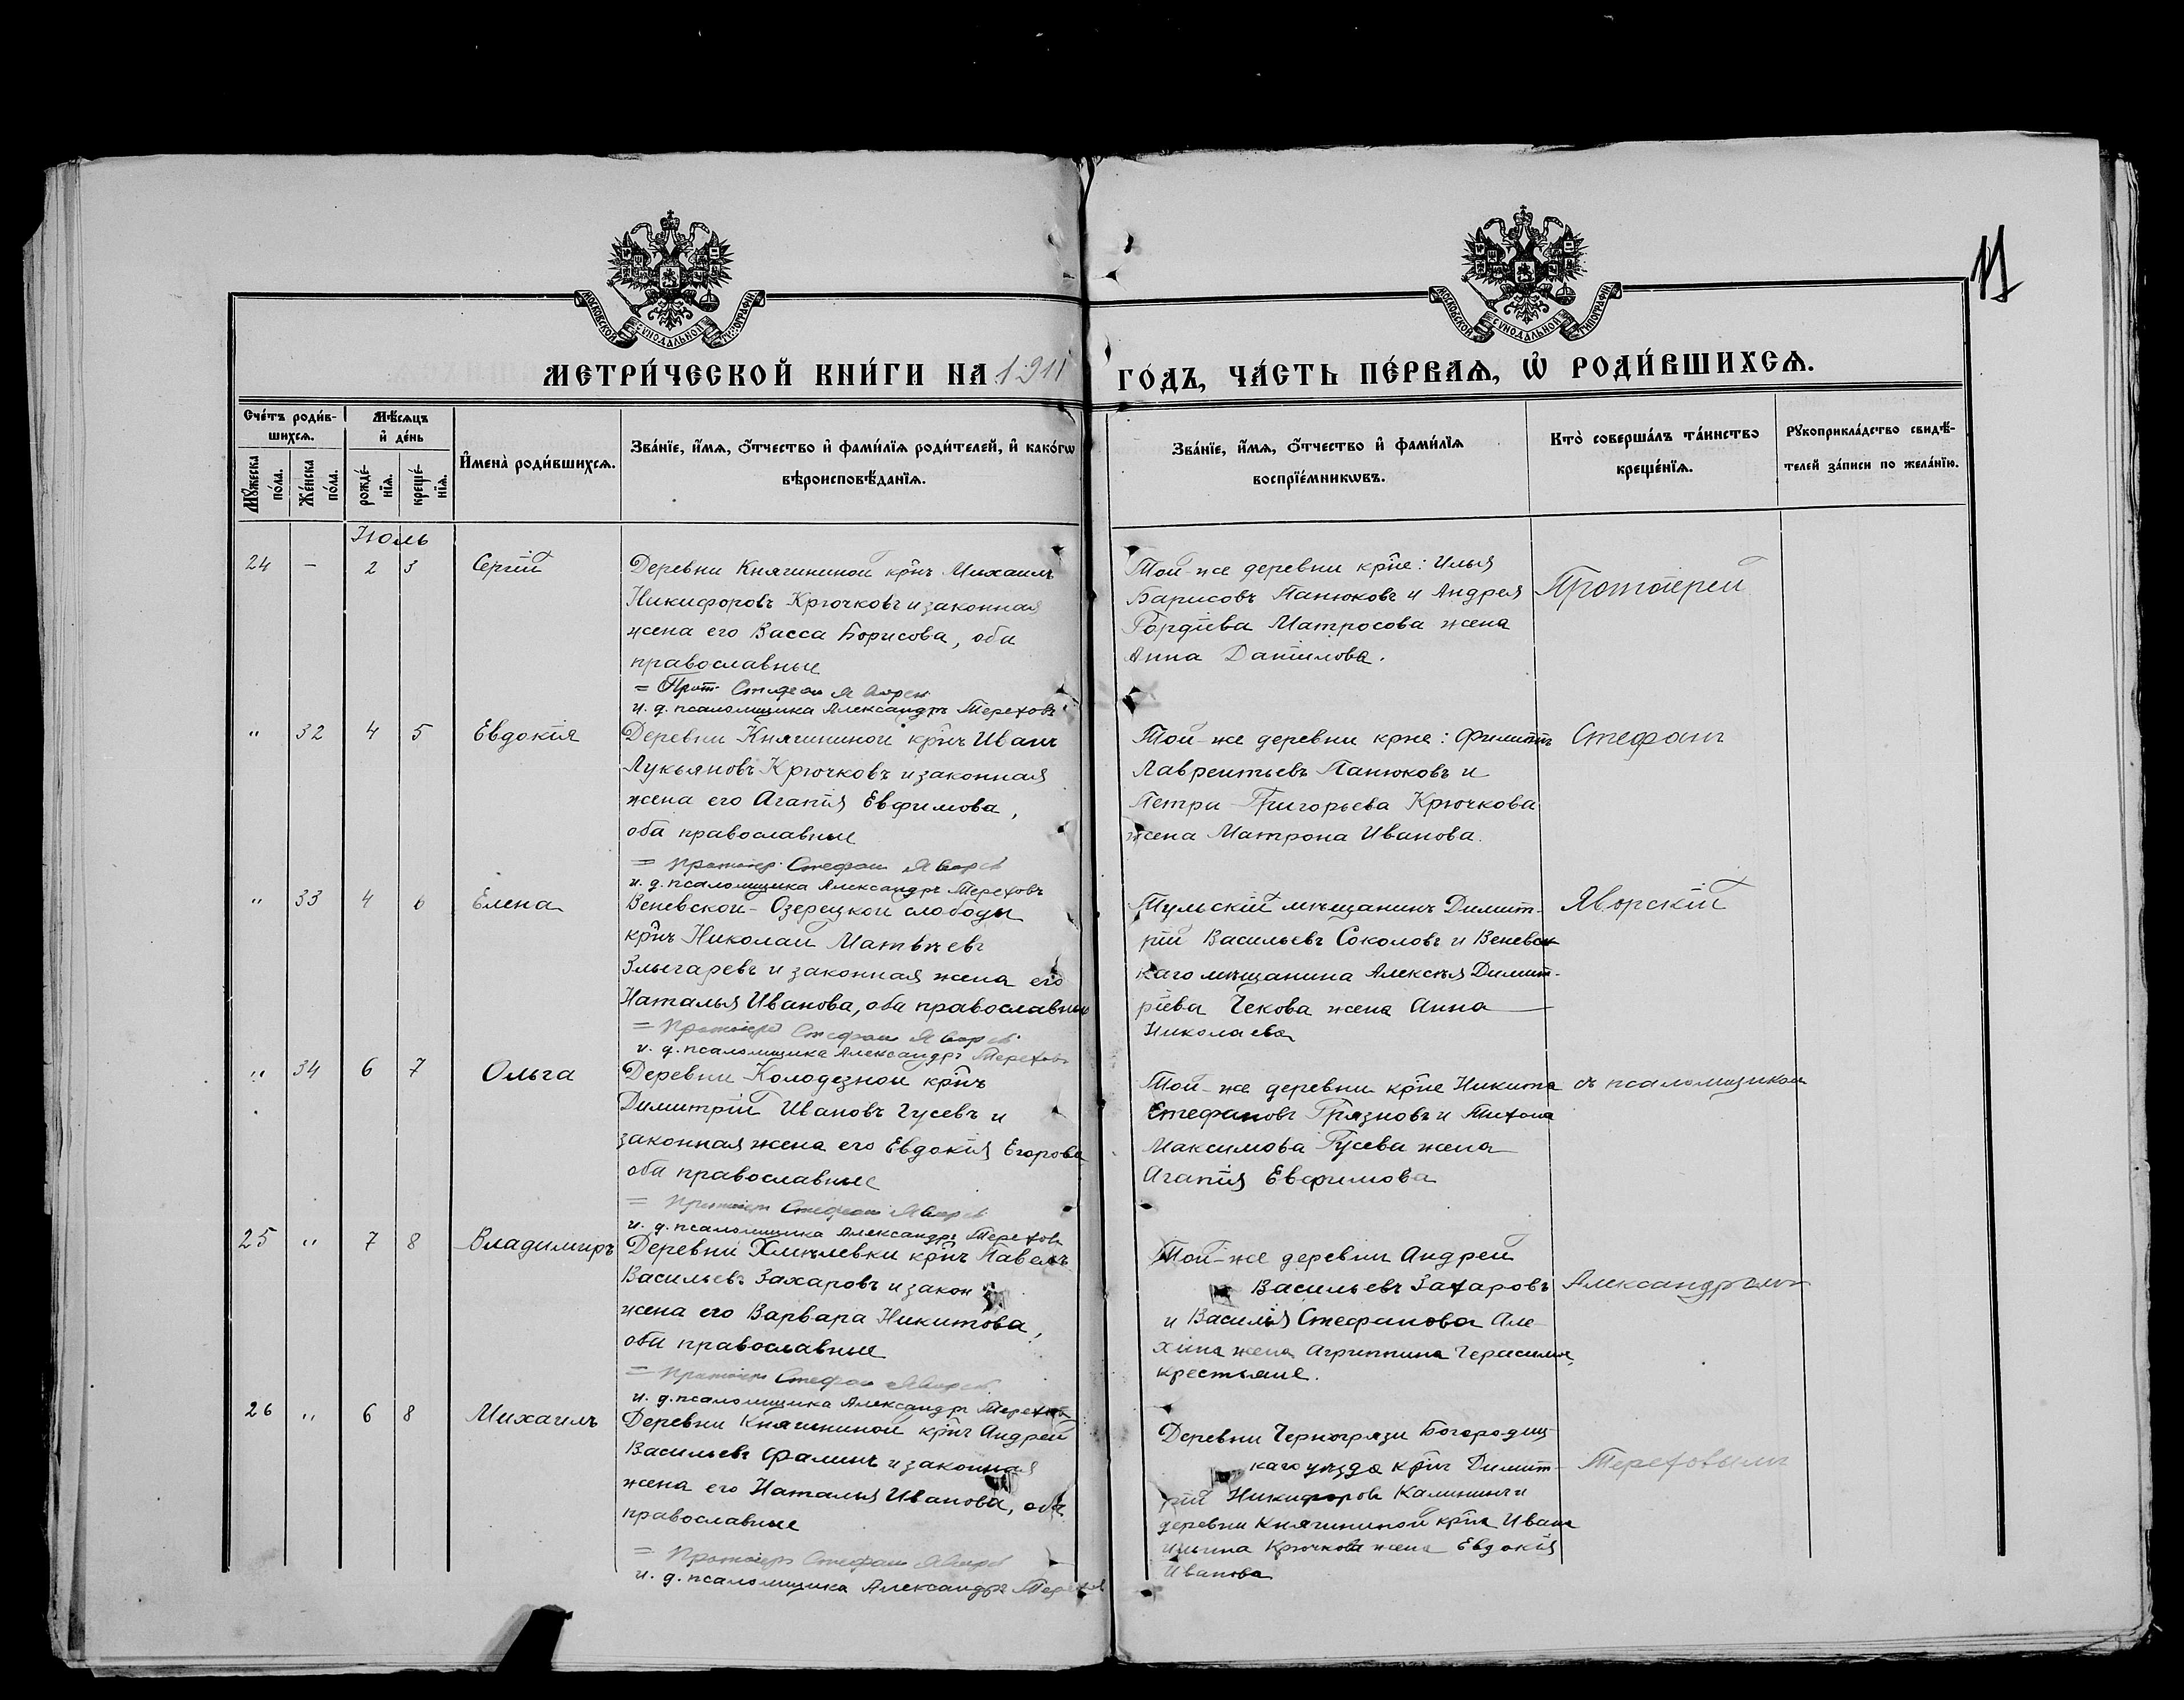 11
МОСКОВСКОЙ СѴНОДАЛЬНОЙ ТИПОГРАФІИ
МОСКОВСКОЙ СѴНОДАЛЬНОЙ ТИПОГРАФІИ
МЕТРИ́ЧЕСКОЙ КНИ́ГИ НА 1911 ГО́ДЪ, ЧА́СТЬ ПЕ́РВАѦ, Ѡ҆ РОДИ́ВШИХСѦ.
Сче́тъ роди́в-
шихсѧ.
Мꙋ́жеска по́ла.
Же́нска по́ла.
Мѣ́сѧцъ
и҆ де́нь
рожде́-
нїѧ.
креще́-
нїѧ.
И҆мена̀ роди́вшихсѧ.
Зва́нїе, и҆́мѧ, ѻ҆́тчество и҆ фами́лїѧ роди́телей, и҆ како́гѡ
вѣроисповѣ́данїѧ.
Зва́нїе, и҆́мѧ, ѻ҆́тчество и҆ фами́лїѧ
воспрїе́мникѡвъ.
Кто̀ соверша́лъ та́инство
креще́нїѧ.
Рꙋкоприкла́дство свидѣ́-
телей за́писи по жела́нїю.
Іюль
24 – 2 3 Сергій
Деревни Княгининой крнъ Михаилъ
Никифоровъ Крючковъ и законная
жена его Васса Борисова, оба
православные
= Прот. Стефан Яворск
и. д. псаломщика Александръ Тереховъ
Той-же деревни крне: Илья
Барисовъ Панюковъ и Андрея
Гордіева Матросова жена
Анна Даніилова.
Протоіерей
" 32 4 5 Евдокія
Деревни Княгининой крнъ Иванъ
Лукьяновъ Крючковъ и законная
жена его Агапія Евфимова,
оба православные
= Протоіер. Стефан Яворск
и. д. псаломщика Александръ Тереховъ
Той-же деревни крне: Филиппъ
Лаврентьевъ Панюковъ и
Петра Григорьева Крючкова
жена Матрона Иванова.
Стефанъ
" 33 4 6 Елена
Веневской-Озерецкой слободы
крнъ Николай Матвѣевъ
Злыгаревъ и законная жена его
Наталья Иванова, оба православные
= Протоіер Стефан Яворск
и. д. псаломщика Александръ Тереховъ
Тульскій мѣщанинъ Димит-
рій Васильевъ Соколовъ и Веневск-
каго мѣщанина Алексѣя Димит-
ріева Чекова жена Анна
Николаева
Яворскій
" 34 6 7 Ольга
Деревни Колодезной крнъ
Димитрій Ивановъ Гусевъ и
законная жена его Евдокія Егорова
оба православные
= Протоіер Стефан Яворск
и. д. псаломщика Александръ Терехов
Той-же деревни крне Никита
Стефановъ Грязновъ и Тихона
Максимова Гусева жена
Агапія Евфимова
съ псаломщикомъ
25 " 7 8 Владимиръ
Деревни Хмѣлевки крнъ Павелъ
Васильевъ Захаровъ и закон
жена его Варвара Никитова,
оба православные
= Протоіер Стефан Яворск
и. д. псаломщика Александръ Терехов
Той-же деревни Андрей
Васильевъ Захаровъ
и Василія Стефанова Але-
хина жена Агриппина Герасимов,
крестьяне.
Александромъ
26 " 6 8 Михаилъ
Деревни Княгининой крнъ Андрей
Васильевъ Фалинъ и законная
жена его Наталья Иванова, оба
православные
= Протоіер Стефан Яворск
и. д. псаломщика Александръ Терехов
Деревни Черногрязи Богородиц-
каго уѣзда крнъ Димит-
рій Никифоровъ Калининъ и
деревни Княгининой крна Ивана
Ильина Крючкова жена Евдокія
Иванова
Тереховымъ